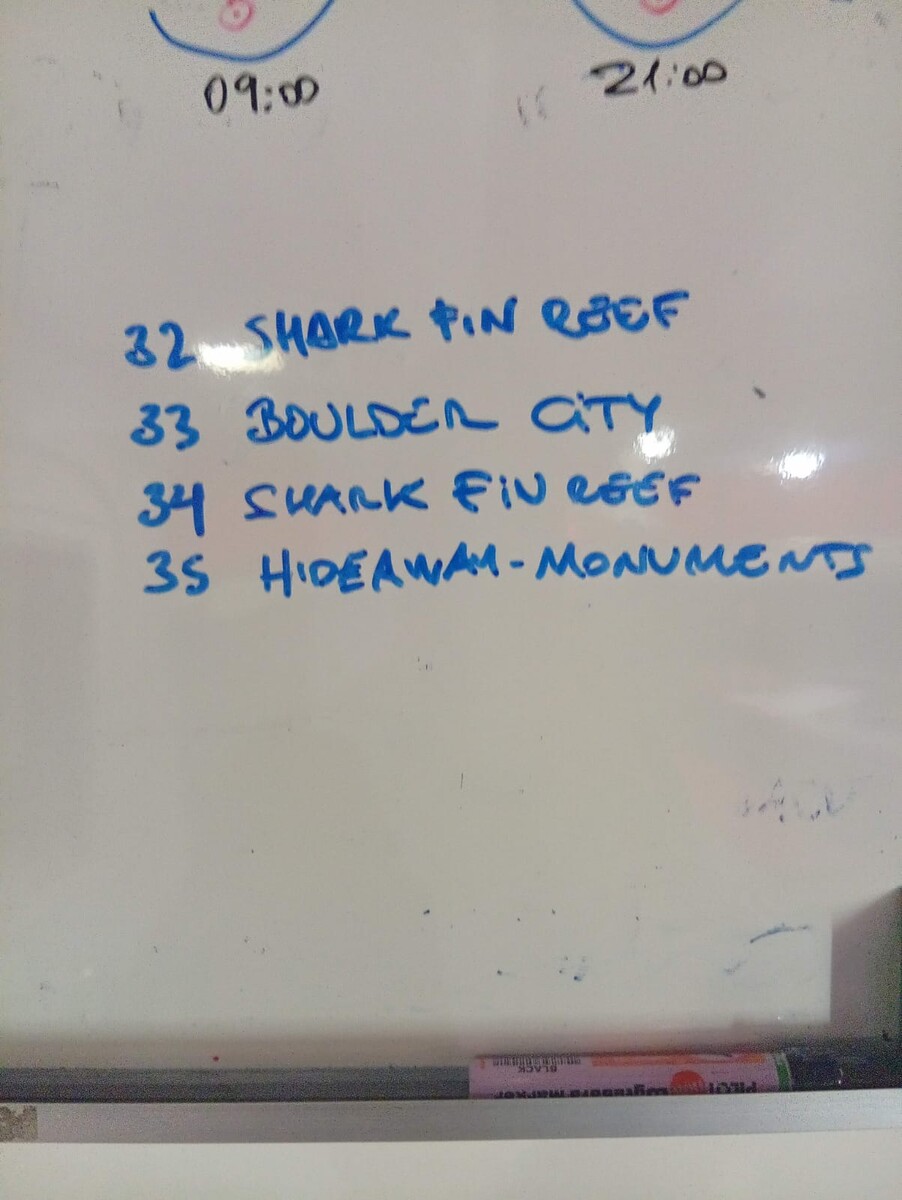 09:00 21:00
32 SHARK FIN REEF
33 BOULDER CITY
34 SHARK FIN REEF
35 HIDEAWAY-MONUMENTS
BLACK
PILOT